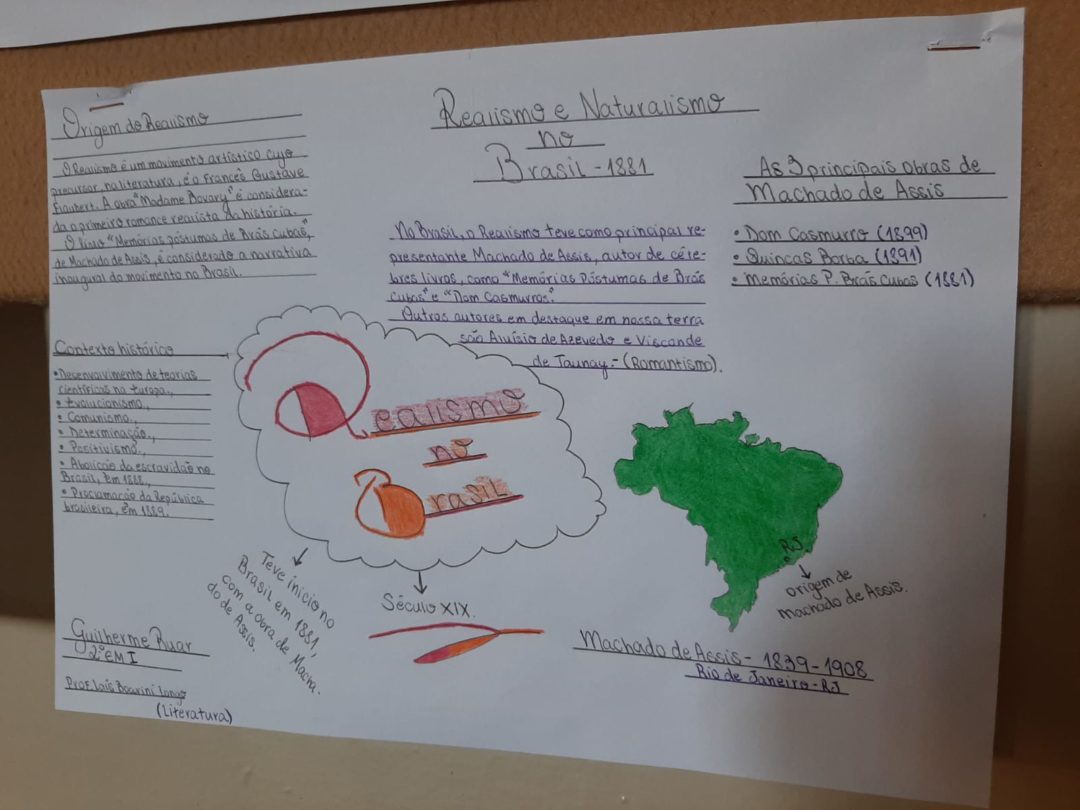 Origem do Realismo
O Realismo é um movimento artístico cujo
precursor, na literatura, é o francês Gustave
Flaubert. A obra "Madame Bovary" é considera-
da o primeiro romance realista da história.
O livro "Memórias póstumas de Brás Cubas",
de Machado de Assis, é considerado a narrativa
inaugural do movimento no Brasil.
Realismo e Naturalismo
no
Brasil - 1881
No Brasil, o Realismo teve como principal re-
presentante Machado de Assis, autor de céle-
bres livros, como "Memórias Póstumas de Brás
Cubas" e "Dom Casmurro".
Outros autores em destaque em nossa terra
são Aluísio de Azevedo e Visconde
de Taunay. - (Romantismo).
As 3 principais obras de
Machado de Assis
• Dom Casmurro (1899)
• Quincas Borba (1891)
• Memórias P. Brás Cubas (1881)
Contexto histórico
• Desenvolvimento de teorias
científicas na Europa.,
• Evolucionismo.,
• Comunismo.,
• Determinação.,
• Positivismo.,
• Abolição da escravidão no
Brasil, em 1888.,
• Proclamação da República
brasileira, em 1889.
Realismo
no
Brasil
Teve início no
Brasil em 1881,
com a obra de Macha.
do de Assis.
Século XIX.
RJ
origem de
machado de Assis.
Machado de Assis - 1839-1908
Rio de Janeiro - RJ
Guilherme Ruar
2º EM I
Prof. Laís
(Literatura)